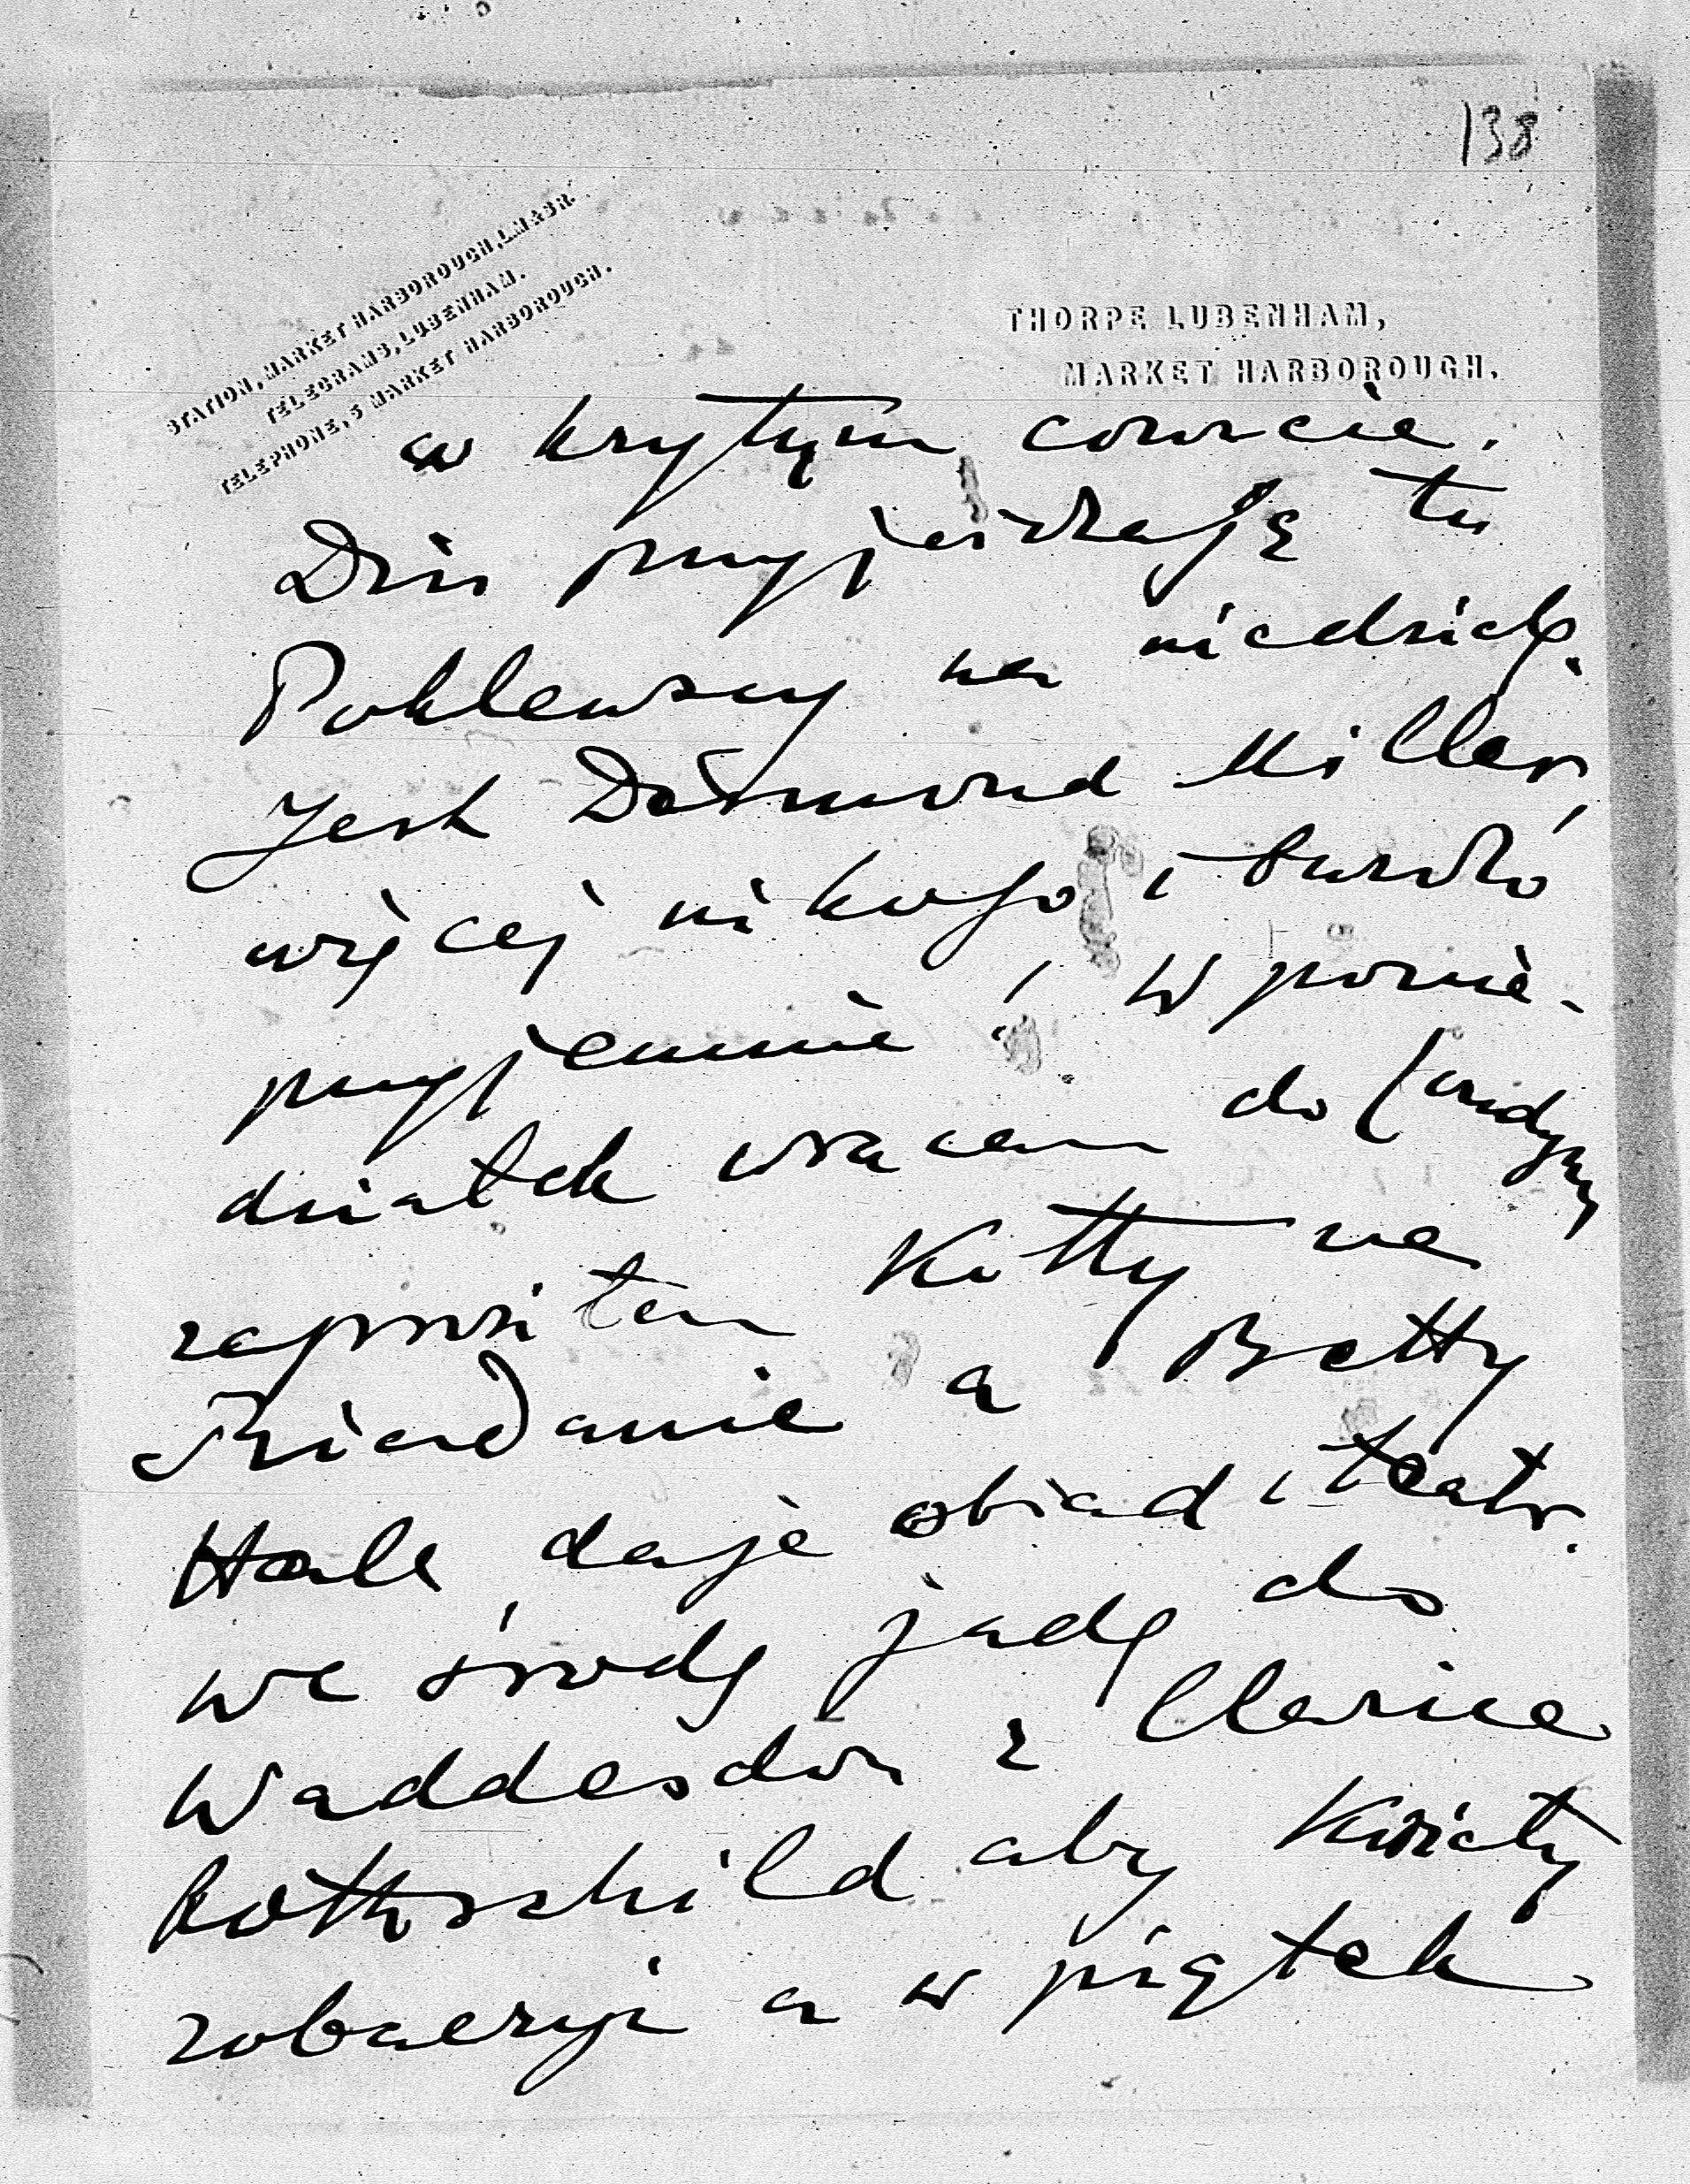 138
STATION, MARKET HARBOROUGH, L.M.&S.R.
TELEGRAMS, LUBENHAM.
TELEPHONE, 5 MARKET HARBOROUGH.
THORPE LUBENHAM,
MARKET HARBOROUGH.
w krytym courcie.
Dziś przyjeżdżają tu
Poklewscy na niedzielę.
Jest Desmond Miller,
więcej nikogo i bardzo
przyjemnie! W ponie-
działek wracam do Londynu
zaprosiłam Kitty na
śniadanie a Betty
Hall daje obiad i teatr.
we środę jadę do
Waddesdon z Clarice
Rothschild aby kwiaty
zobaczyć a w piątek